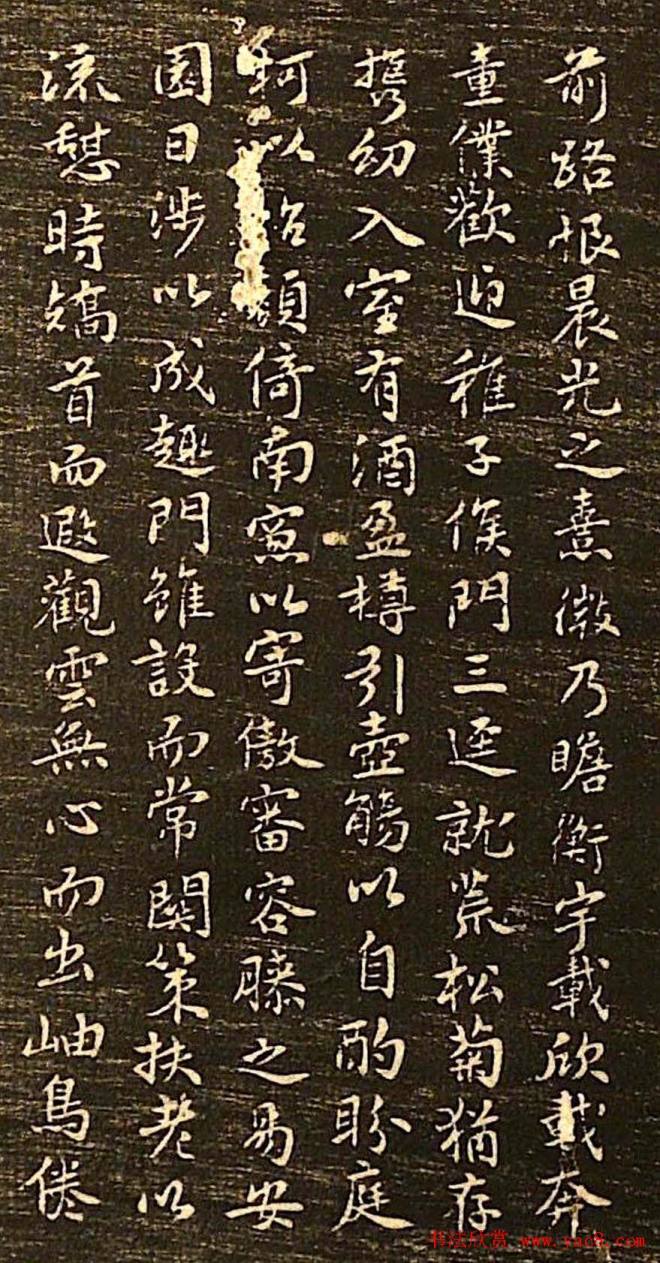 前路恨晨光之熹微乃瞻衡宇載欣載奔
童僕歡迎稚子候門三逕就荒松菊猶存
攜幼入室有酒盈樽引壺觴以自酌眄庭
柯以怡顏倚南窻以寄傲審容膝之易安
園日涉以成趣門雖設而常關策扶老以
流憩時矯首而遐觀雲無心而出岫鳥倦
书法欣赏 www.yac8.com